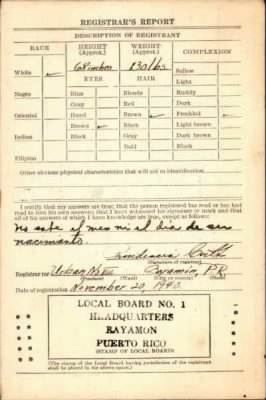 REGISTRAR'S REPORT
DESCRIPTION OF REGISTRANT
RACE HEIGHT (Approx.) WEIGHT (Approx.) COMPLEXION
White ✓ 68 inches 130 lbs Sallow
EYES HAIR Light
Negro Blue Blonde Ruddy
Gray Red Dark
Oriental Hazel Brown ✓ Freckled ✓
Brown ✓ Black Light brown
Indian Black Gray Dark brown
Bald Black
Filipino
Other obvious physical characteristics that will aid in identification
I certify that my answers are true; that the person registered has read or has had
read to him his own answers; that I have witnessed his signature or mark and that
all of his answers of which I have knowledge are true, except as follows:
No sabe el mes ni el dia de su
nacimiento.
(Signature of registrar)
Registrar for Bayamón, P.R.
(Precinct) (Ward) (City or county) (State)
Date of registration November 20, 1940.
LOCAL BOARD NO. 1
HEADQUARTERS
BAYAMON
PUERTO RICO
(STAMP OF LOCAL BOARD)
(The stamp of the Local Board having jurisdiction of the registrant
shall be placed in the above space.)